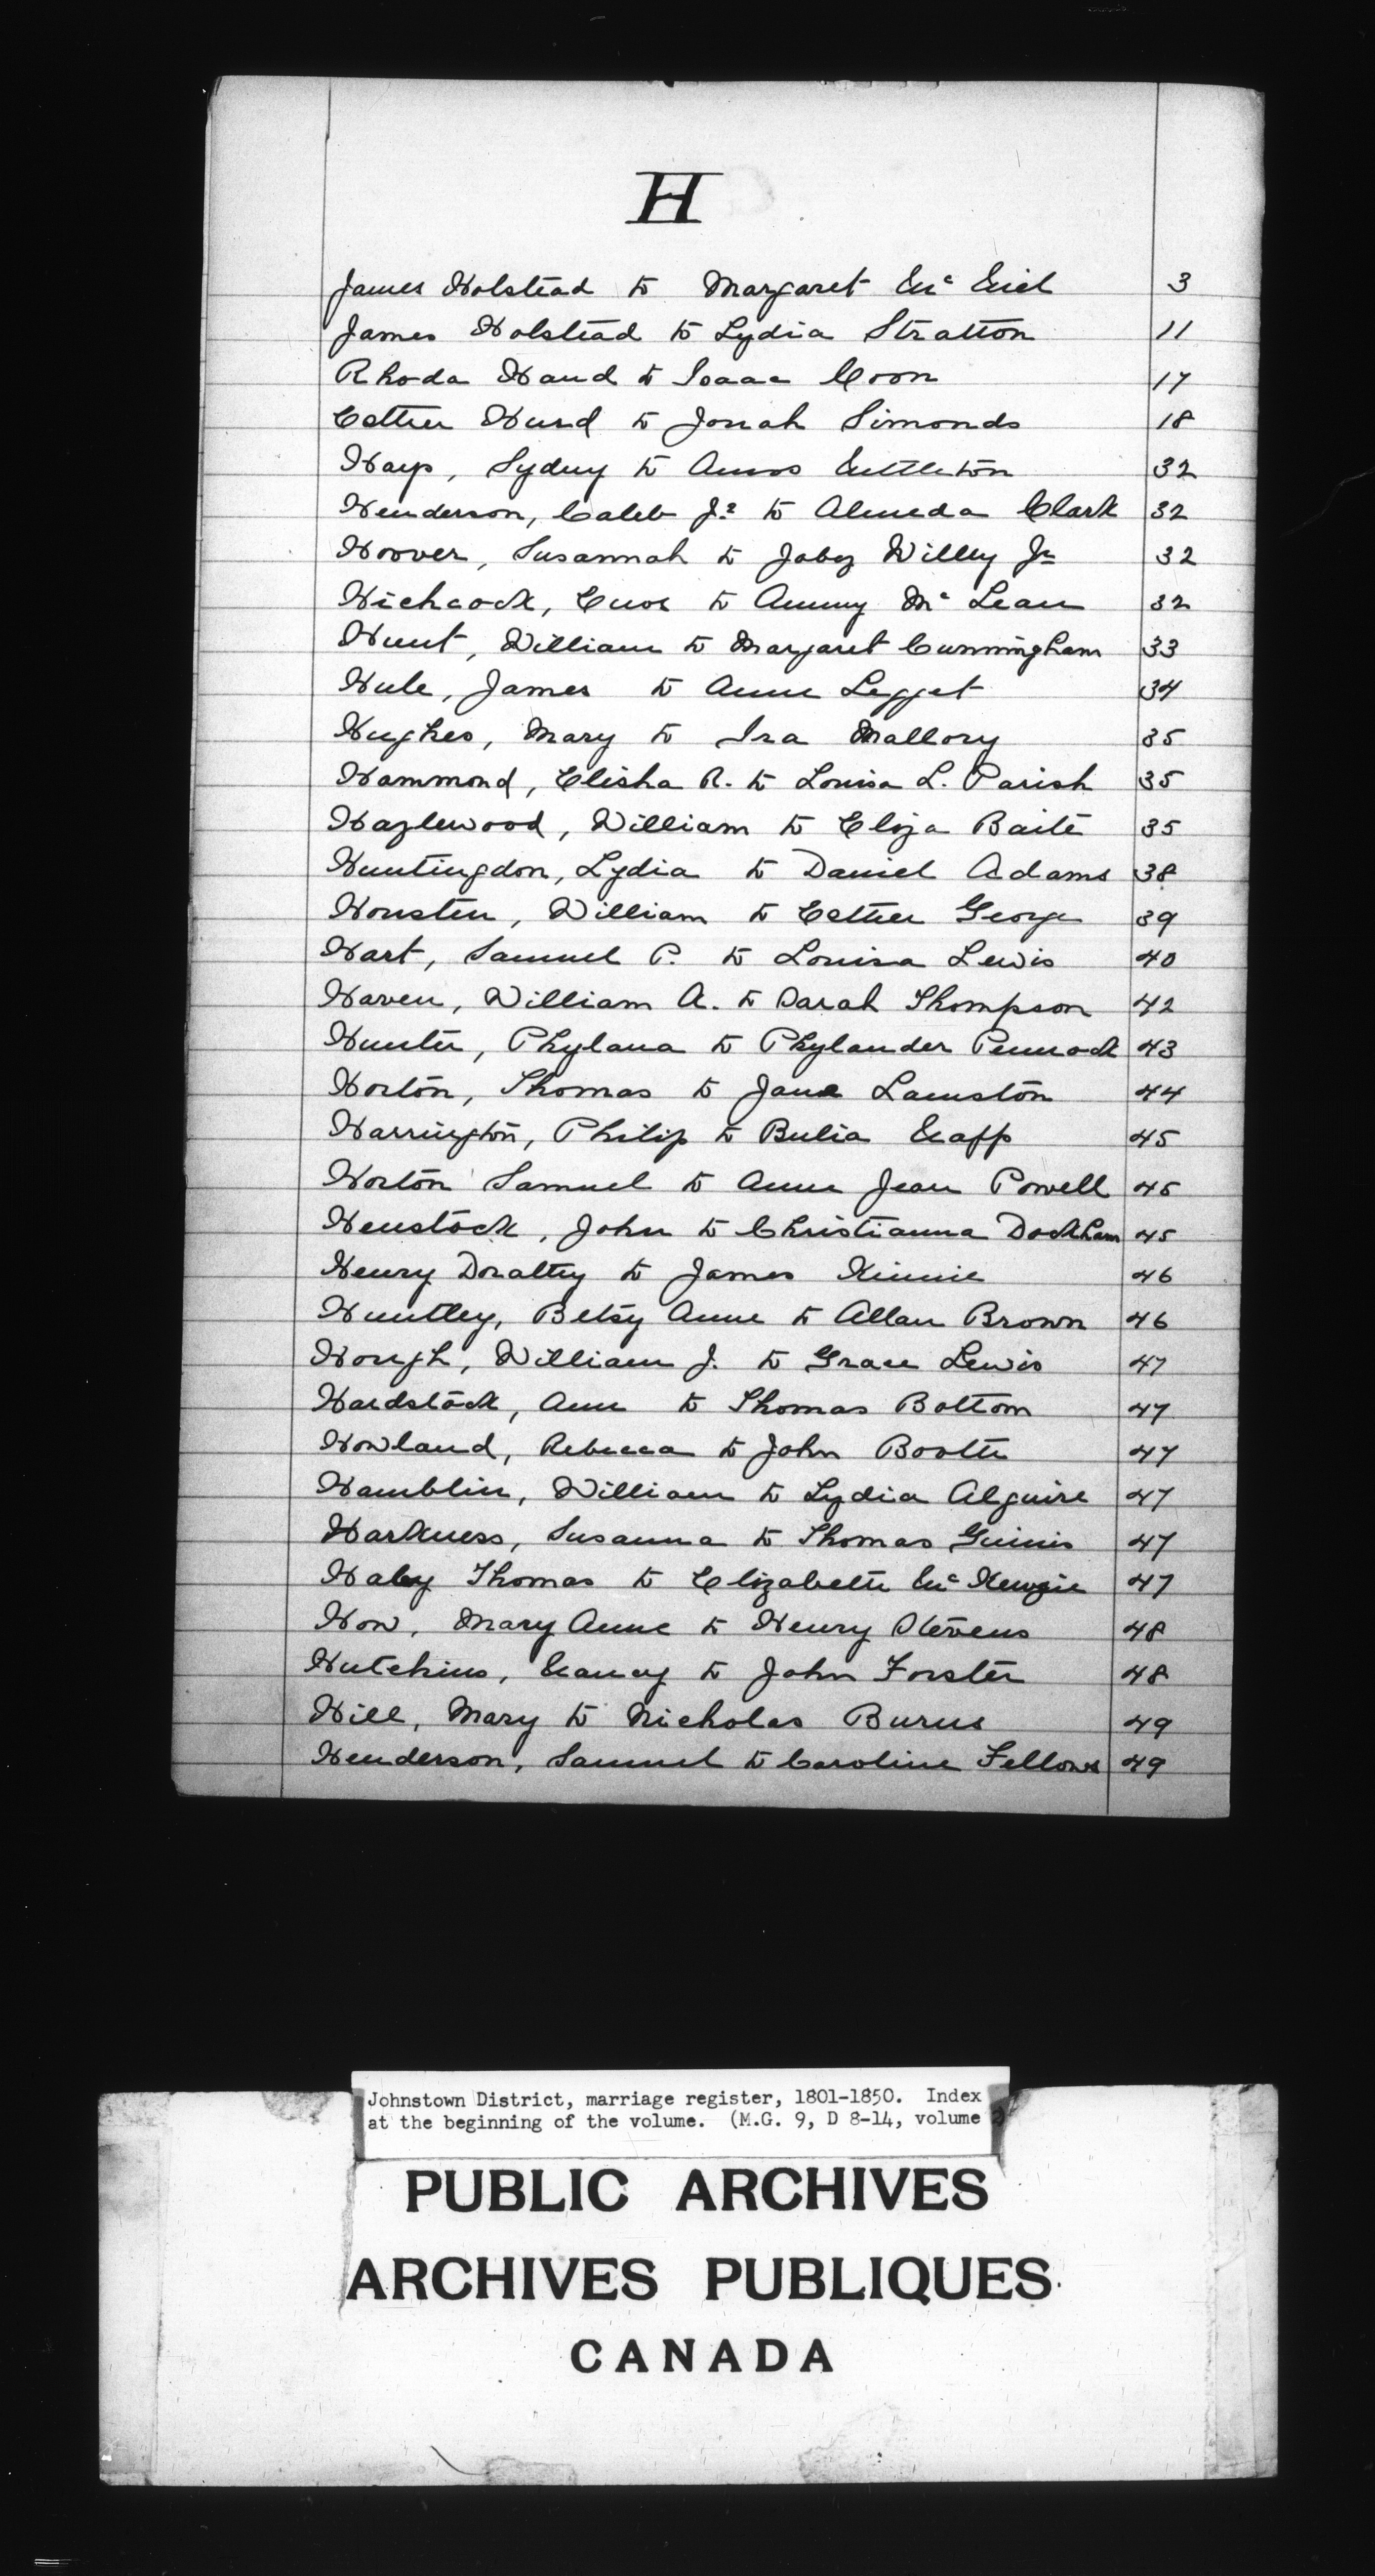 H
James Holstead to Margaret Mc Niel 3
James Holstead to Lydia Stratton 11
Rhoda Hand to Isaac Coon 17
Esther Hurd to Jonah Simonds 18
Hays, Sydny to Amos Nettleton 32
Henderson, Caleb Jr to Almeda Clark 32
Hoover, Susannah to Jabez Willey Jr 32
Hichcock, Enos to Ammy Mc Lean 32
Hunt, William to Margaret Cunningham 33
Hule, James to Anne Legget 34
Hughes, Mary to Ira Mallory 35
Hammond, Elisha R. to Louisa L. Parish 35
Hazlewood, William to Eliza Baite 35
Huntingdon, Lydia to Daniel Adams 38
Housten, William to Esther George 39
Hart, Samuel P. to Louisa Lewis 40
Haven, William A. to Sarah Thompson 42
Hunter, Phylana to Phylander Pennock 43
Horton, Thomas to Jane Lamston 44
Harrington, Philip to Bulia Knapp 45
Horton Samuel to Anne Jean Powell 45
Henstock, John to Christianna Dockham 45
Henry Dorathy to James Kinnie 46
Huntley, Betsy Anne to Allan Brown 46
Hough, William J. to Grace Lewis 47
Hardstock, Ann to Thomas Bottom 47
Howland, Rebecca to John Booth 47
Hamblin, William to Lydia Alguire 47
Harkness, Susanna to Thomas Guinis 47
Haley Thomas to Elizabeth Mc Kenzie 47
How, Mary Anne to Henry Stevens 48
Hutchins, Nancy to John Forster 48
Hill, Mary to Nicholas Burns 49
Henderson, Samuel to Caroline Fellows 49
Johnstown District, marriage register, 1801-1850. Index
at the beginning of the volume. (M.G. 9, D 8-14, volume
PUBLIC ARCHIVES
ARCHIVES PUBLIQUES
CANADA